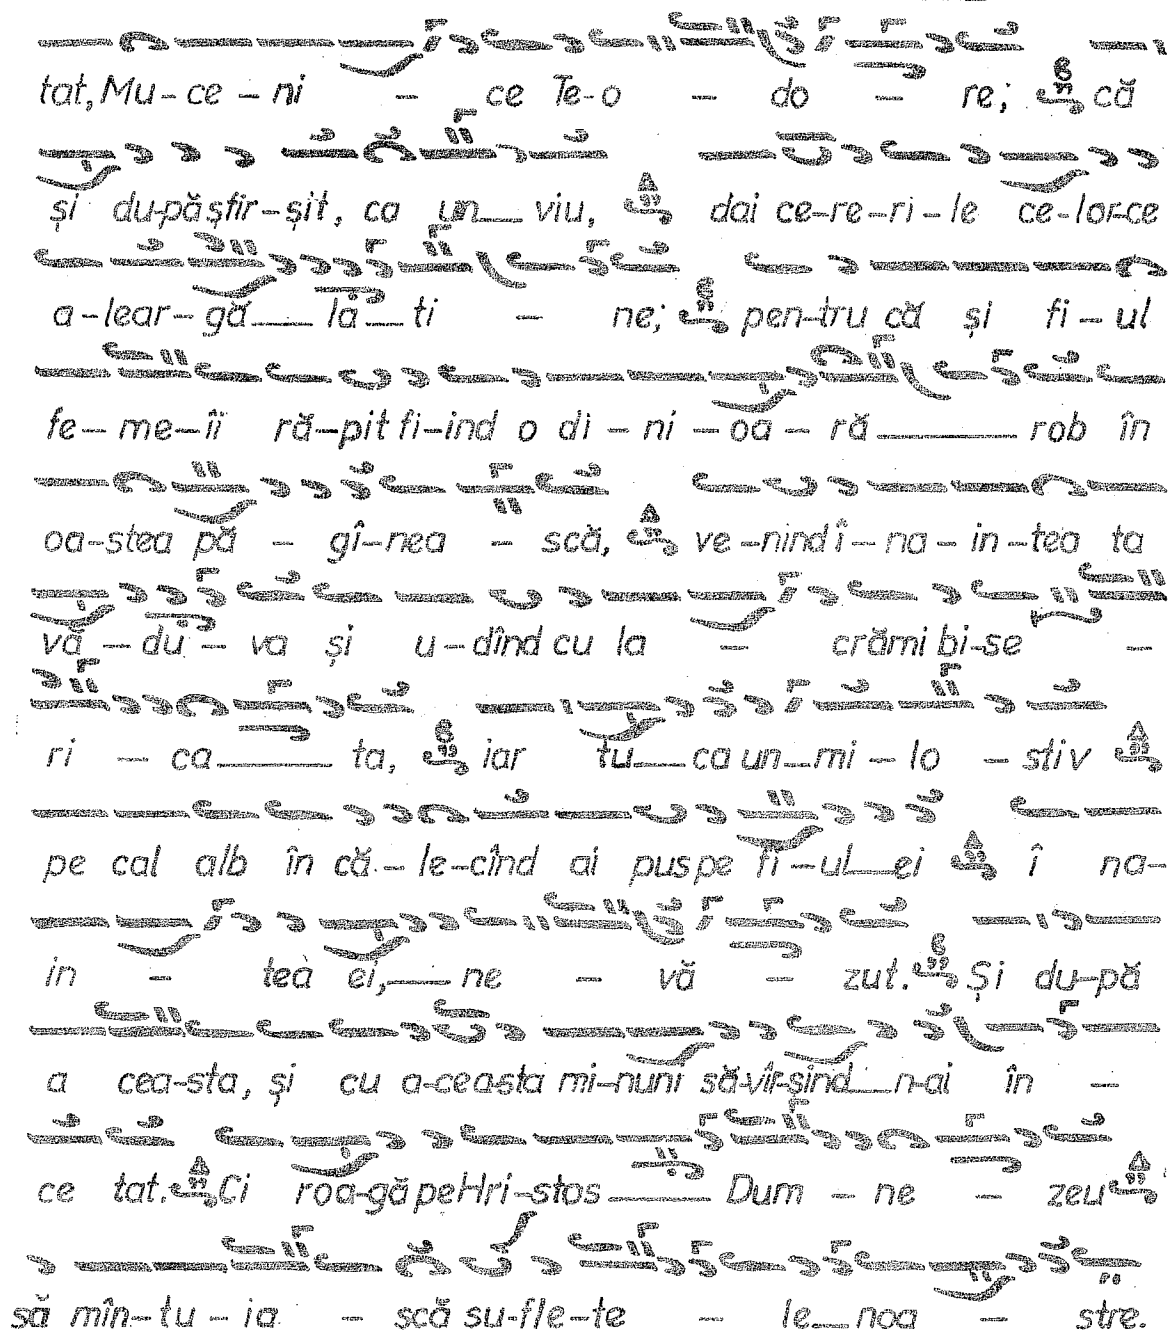 tat, Mu – ce – ni – ce Te-o – do – re; că
și du-pă sfîr-șit, ca un__ viu, dai ce-re-ri-le ce-lor-ce
a-lear-gă__ la__ ti – ne; pen-tru că și fi-ul
fe-me-ii ră-pit fi-ind o di-ni-oa-ră__ rob în
oa-stea pă – gî-nea – scă, ve-nind î-na-in-tea ta
vă-du-va și u-dînd cu la – crămi bi-se –
ri – ca__ ta, iar tu__ ca un__ mi-lo – stiv
pe cal alb în că-le-cînd ai pus pe fi-ul__ ei î na-
in – tea ei,__ ne – vă – zut. Și du-pă
a cea-sta, și cu a-cea-sta mi-nuni să-vîr-șind__ n-ai în –
ce tat. Ci roa-gă pe Hri-stos__ Dum – ne – zeu
să mîn-tu-ia – scă su-fle-te – le__ noa – stre.